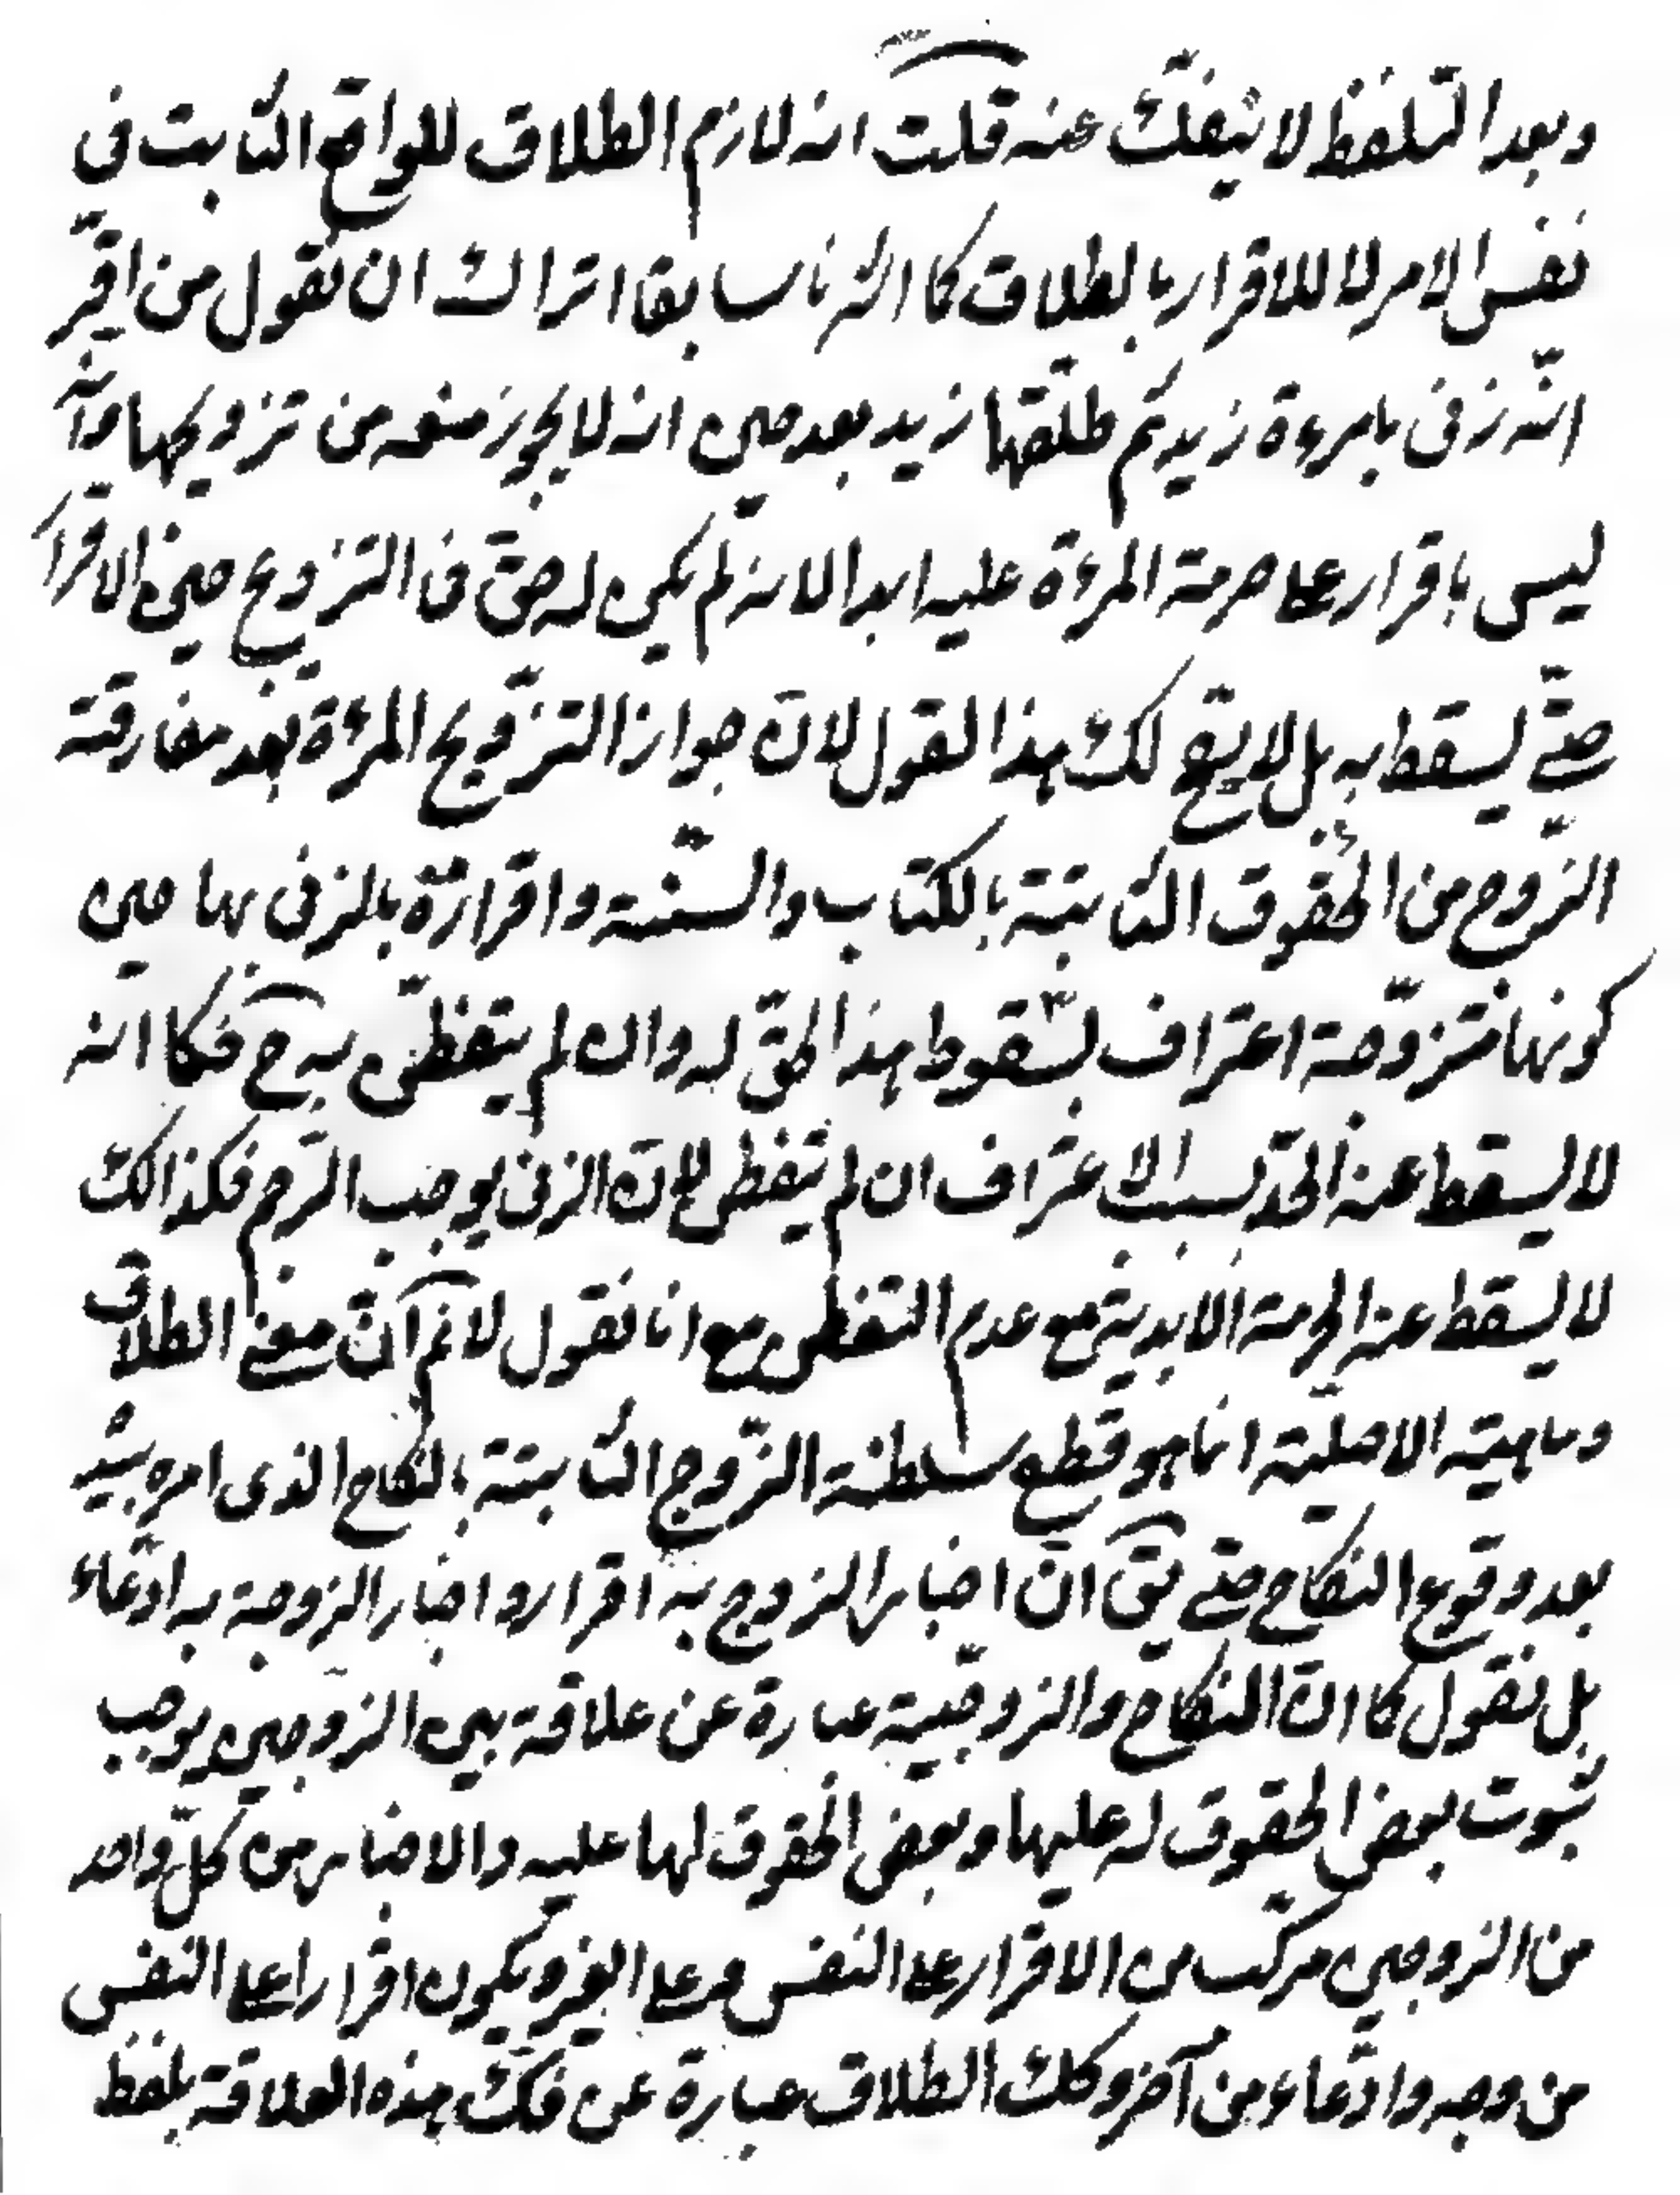 وبعد التلفظ لا ينفك عنه قلت انه لازم الطلاق للواقع الثابت فى
نفس الامر لا للاقرار بالطلاق كما اشرنا سابقا اتراك ان تقول من اقرّ
انّه زنى بامرءة زيد ثم طلّقها زيد بعد حين انه لا يجوز منعه من تزويجها وانّه
ليس باقرار على حرمة المرءة عليه ابدا لانه لم يكن له حقّ فى التزويج حين الاقرار
حتّى يسقط به بل لا يقع لك هذا القول لانّ جواز التزويج المرءة بعد مفارقة
الزّوج من الحقوق الثابتة بالكتاب والسنّة واقراره بالزنى بها حين
كونها متزوّجة اعتراف بسقوط هذا الحقّ له وان لم يتفطّن به ح فكما انه
لا يسقط عنه الحدّ بسبب الاعتراف ان لم يتفطن بانّ الزنى يوجب الرّجم فكذالك
لا يسقط عنه الحرمة الابديّة مع عدم التفطن ومع انا نقول لا نم انّ معنى الطلاق
وماهيته الاصليّة انما هو قطع سلطنة الزّوج الثابتة بالنكاح الذى امره بيده
بعد وقوع النكاح حتى يق انّ اخبار الزوج به اقرار واخبار الزوجة به ادّعاء
بل نقول كما انّ النكاح والزوجّية عبارة عن علاقة بين الزّوجين يوجب
ثبوت بعض الحقوق له عليها وبعض الحقوق لها عليه والاخبار من كلّ واحد
من الزوجين مركّب من الاقرار على النفس وعلى الغير ويكون اقرارا على النفس
من وجه وادّعاء من آخر وكك الطلاق عبارة عن فكّ هذه العلاقة بلفظ